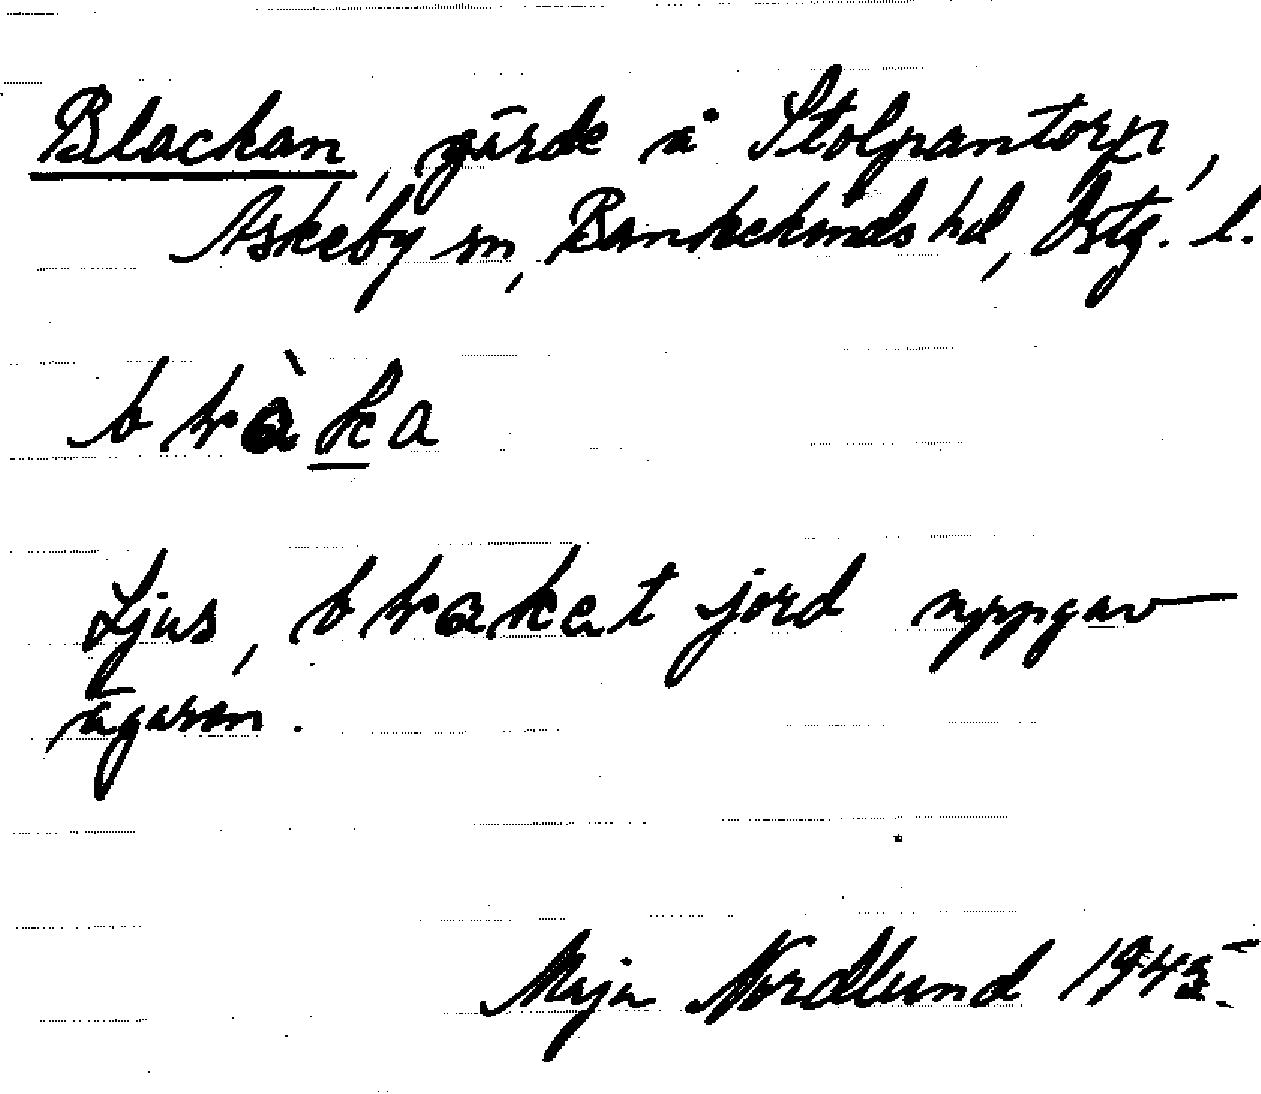 Blackan, gärde å Stolpantorp,
Askeby sn, Bankekinds hd, Östg. l.
Ljus, blakat jord uppgav
ägaren.
Maja Nordlund 1945.